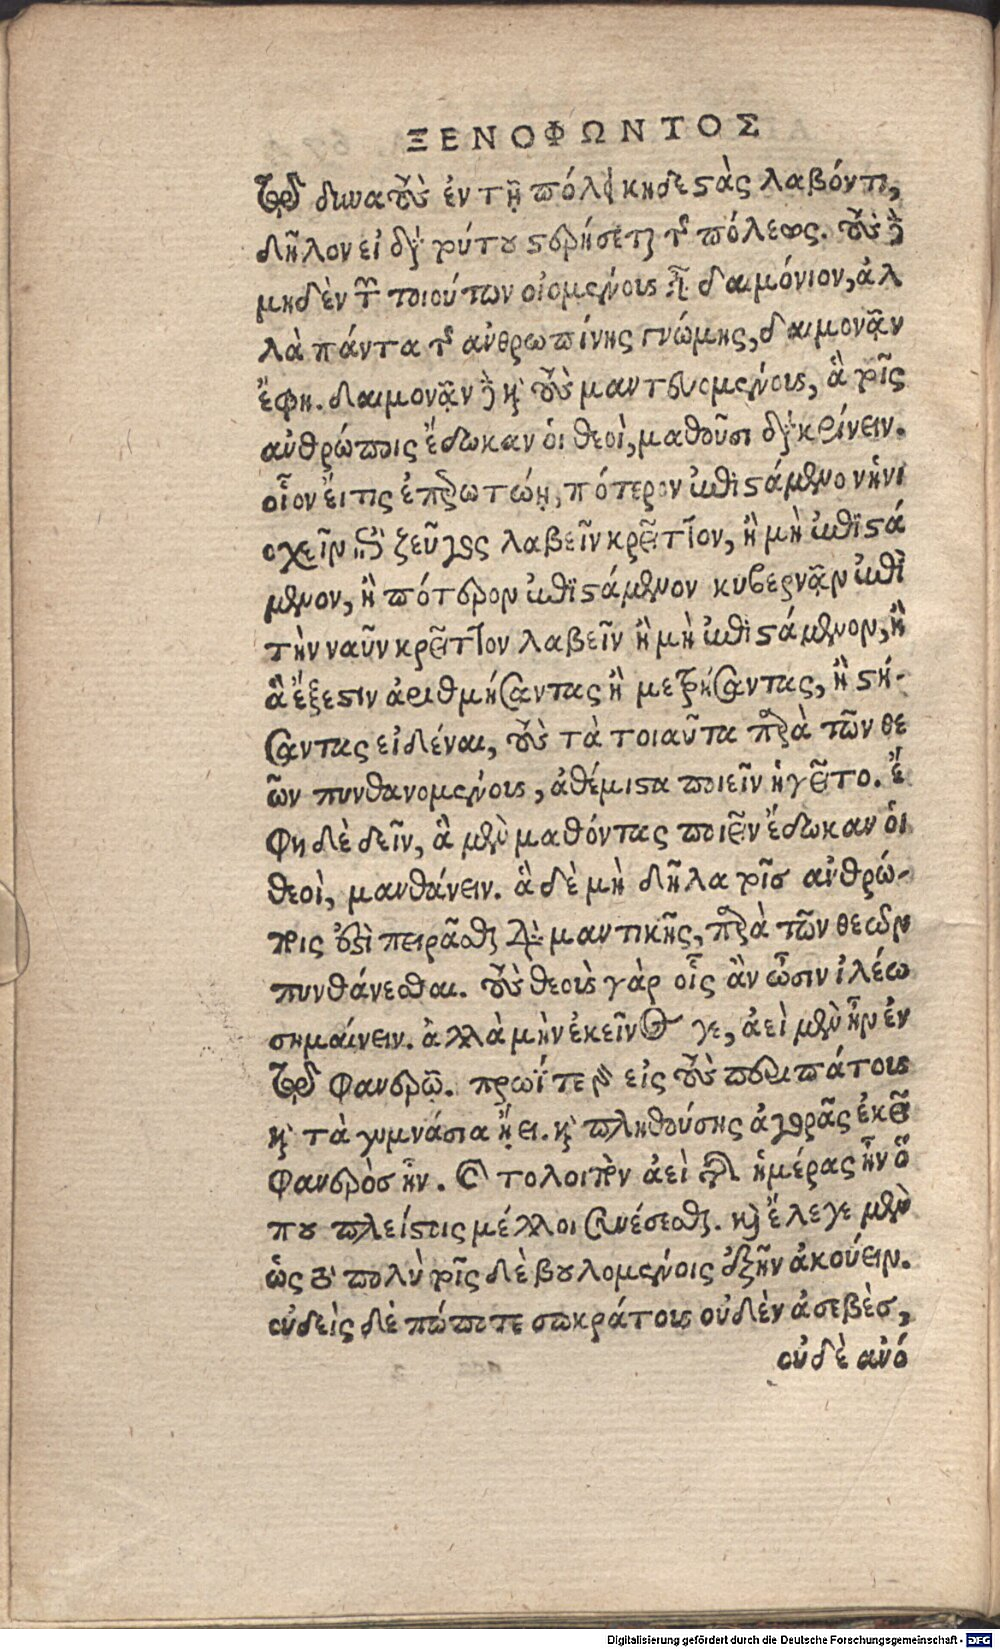 ΞΕΝΟΦΩΝΤΟΣ
τῷ δυνατοὺς ἐν τῇ πόλει κηδεστὰς λαβόντι,
δῆλον εἰ διὰ τούτους στερήσεται τῆς πόλεως. τοὺς δὲ
μηδὲν τῶν τοιούτων οἰομένους εἶναι δαιμόνιον, ἀλ
λὰ πάντα τῆς ἀνθρωπίνης γνώμης, δαιμονᾷν
ἔφη. δαιμονᾷν δὲ καὶ τοὺς μαντευομένους, ἃ τοῖς
ἀνθρώποις ἔδωκαν οἱ θεοὶ, μαθοῦσι διακρίνειν.
οἷον εἴ τις ἐπερωτώη, πότερον ἐπιστάμενον ἡνι
οχεῖν ἐπὶ ζεῦγος λαβεῖν κρεῖττον, ἢ μὴ ἐπιστά
μενον, ἢ πότερον ἐπιστάμενον κυβερνᾷν ἐπὶ
τὴν ναῦν κρεῖττον λαβεῖν ἢ μὴ ἐπιστάμενον, ἢ
ἃ ἔξεστιν ἀριθμήσαντας ἢ μετρήσαντας, ἢ στή-
σαντας εἰδέναι, τοὺς τὰ τοιαῦτα παρὰ τῶν θε
ῶν πυνθανομένους, ἀθέμιστα ποιεῖν ἡγεῖτο. ἔ
φη δὲ δεῖν, ἃ μὲν μαθόντας ποιεῖν ἔδωκαν οἱ
θεοὶ, μανθάνειν. ἃ δὲ μὴ δῆλα τοῖς ἀνθρώ-
ποις ἐστὶ πειρᾶσθαι διὰ μαντικῆς, παρὰ τῶν θεῶν
πυνθάνεσθαι. τοὺς θεοὺς γὰρ οἷς ἂν ὦσιν ἵλεῳ
σημαίνειν. ἀλλὰ μὴν ἐκεῖνος γε, ἀεὶ μὲν ἦν ἐν
τῷ φανερῷ. πρωΐ τε γὰρ εἰς τοὺς περιπάτους
καὶ τὰ γυμνάσια ᾔει. καὶ πληθούσης ἀγορᾶς ἐκεῖ
φανερὸς ἦν. καὶ τολοιπὸν ἀεὶ τῆς ἡμέρας ἦν ὅ
που πλείστοις μέλλοι συνέσεσθαι. καὶ ἔλεγε μὲν
ὡς ἐπὶ πολὺ τοῖς δὲ βουλομένοις ἐξῆν ἀκούειν.
οὐδεὶς δὲ πώποτε σωκράτους οὐδὲν ἀσεβὲς,
οὐδὲ ἀνό
Digitalisierung gefördert durch die Deutsche Forschungsgemeinschaft - DFG